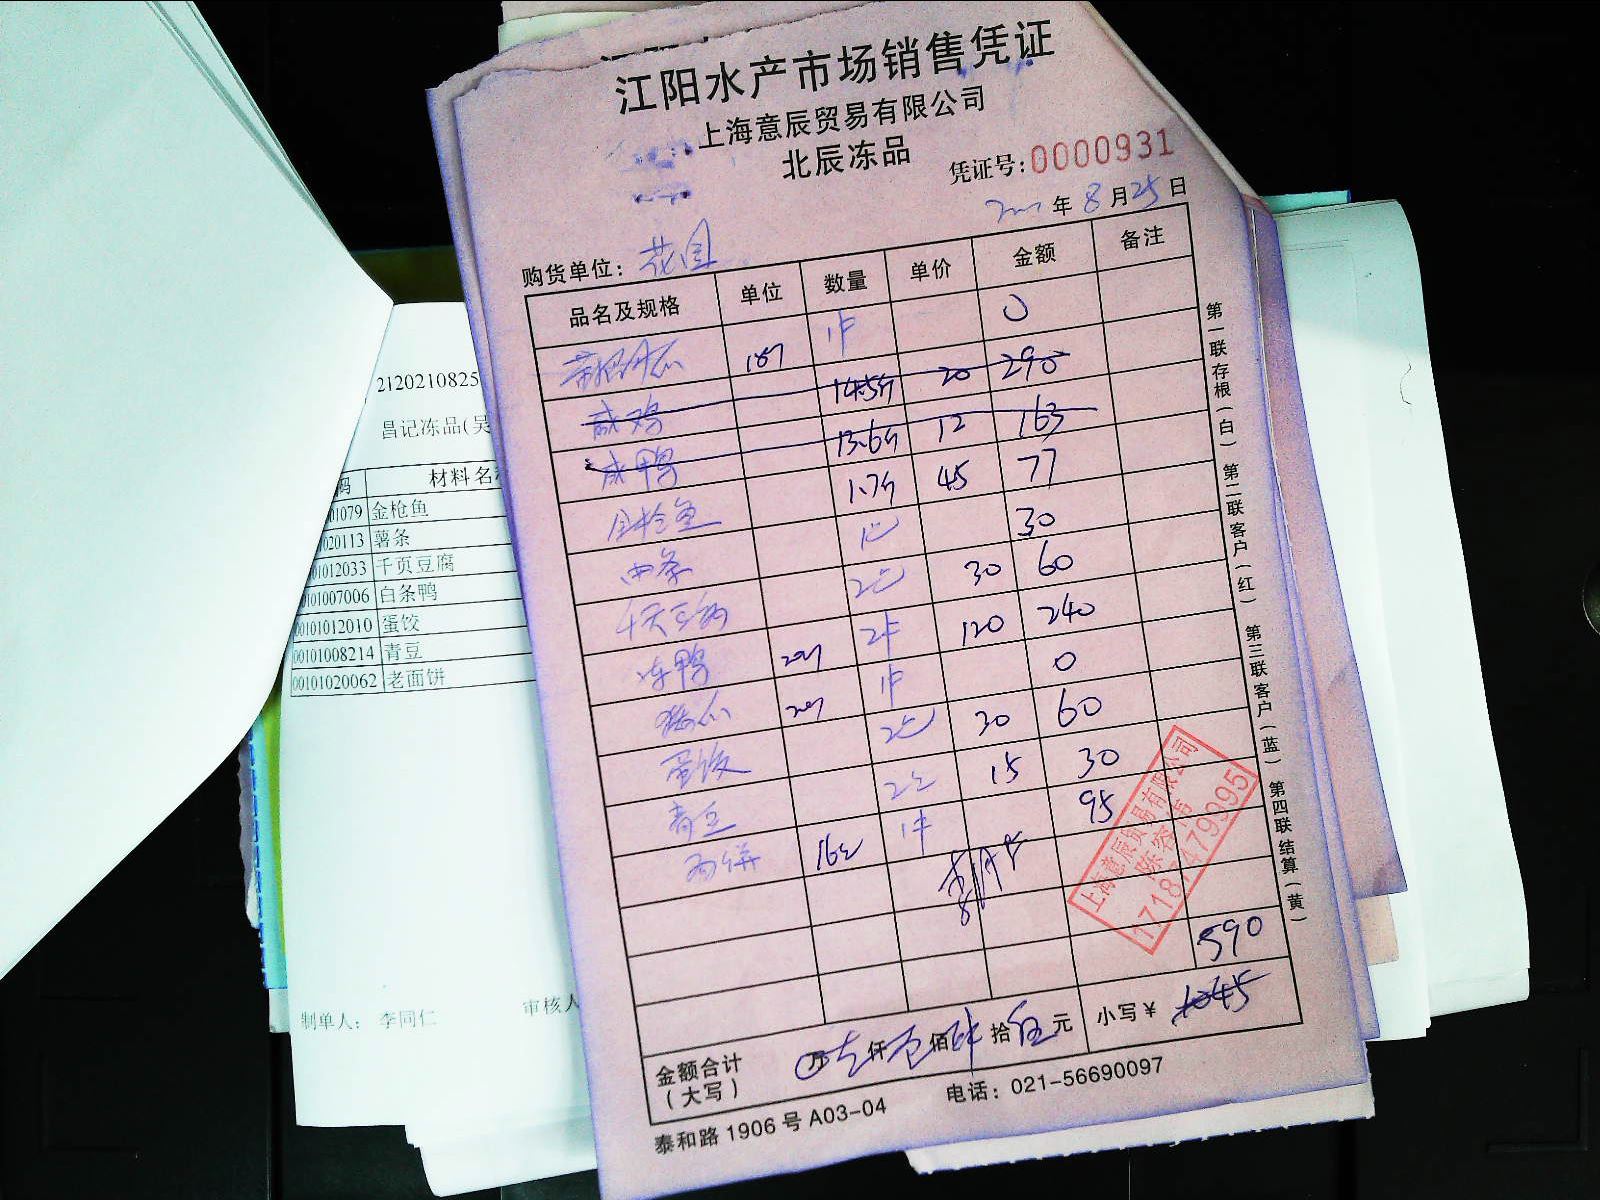 江阳水产市场销售凭证
上海意辰贸易有限公司
北辰冻品
凭证号:0000931
年 8 月 25 日
购货单位: 花园
品名及规格 单位 数量 单价 金额 备注
1件 0
咸鸡 14.5斤 20 290
咸鸭 13.6斤 12 163
金枪鱼 1.7斤 45 77
1包 30
2包 30 60
冻鸭 2件 120 240
1件 0
蛋饺 2包 30 60
青豆 2包 15 30
面饼 16包 1件 95
590
金额合计 万 仟 佰 拾 伍 元 小写¥ 1045
(大写)
泰和路1906号A03-04 电话: 021-56690097
第一联存根(白) 第二联客户(红) 第三联客户(蓝) 第四联结算(黄)
上海意辰贸易有限公司
17187479995
2120210825
昌记冻品(吴
码 材料名
01079 金枪鱼
020113 薯条
01012033 千页豆腐
0101007006 白条鸭
00101012010 蛋饺
00101008214 青豆
00101020062 老面饼
制单人: 李同仁 审核人